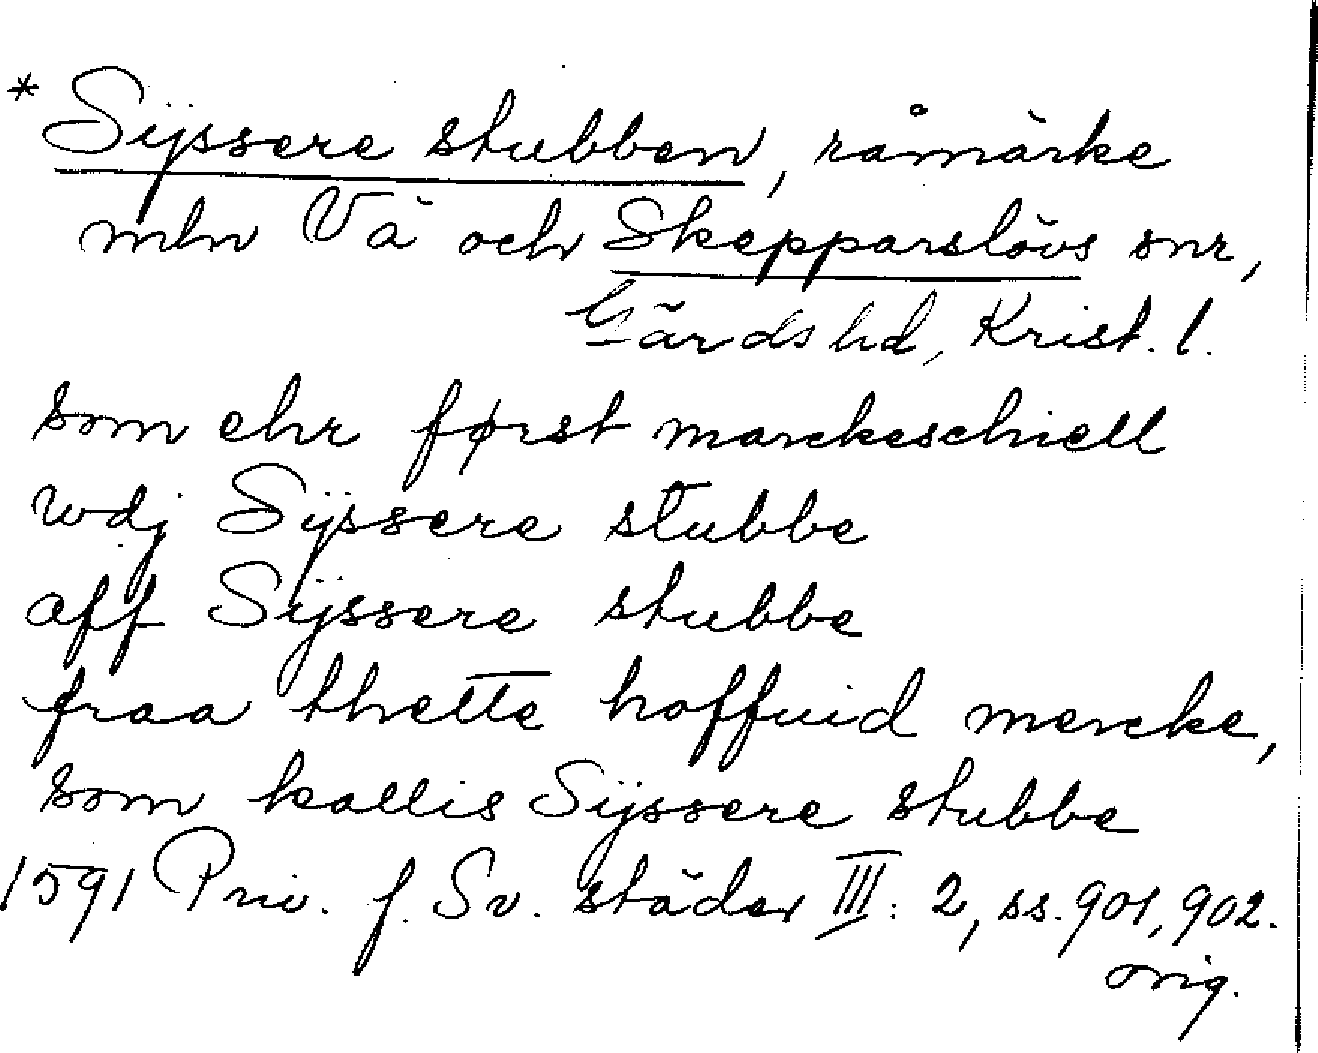 * Sÿssere stubben, råmärke
mln Vä och Skepparslövs snr,
Gärds hd, Krist. l.
som ehr først marckeschiell
wdj Sÿssere stubbe
aff Sÿssere stubbe
fraa thette hoffuid mercke,
som kallis Sÿssere stubbe
1591 Priv. f. Sv. städer III: 2, ss. 901, 902.
orig.